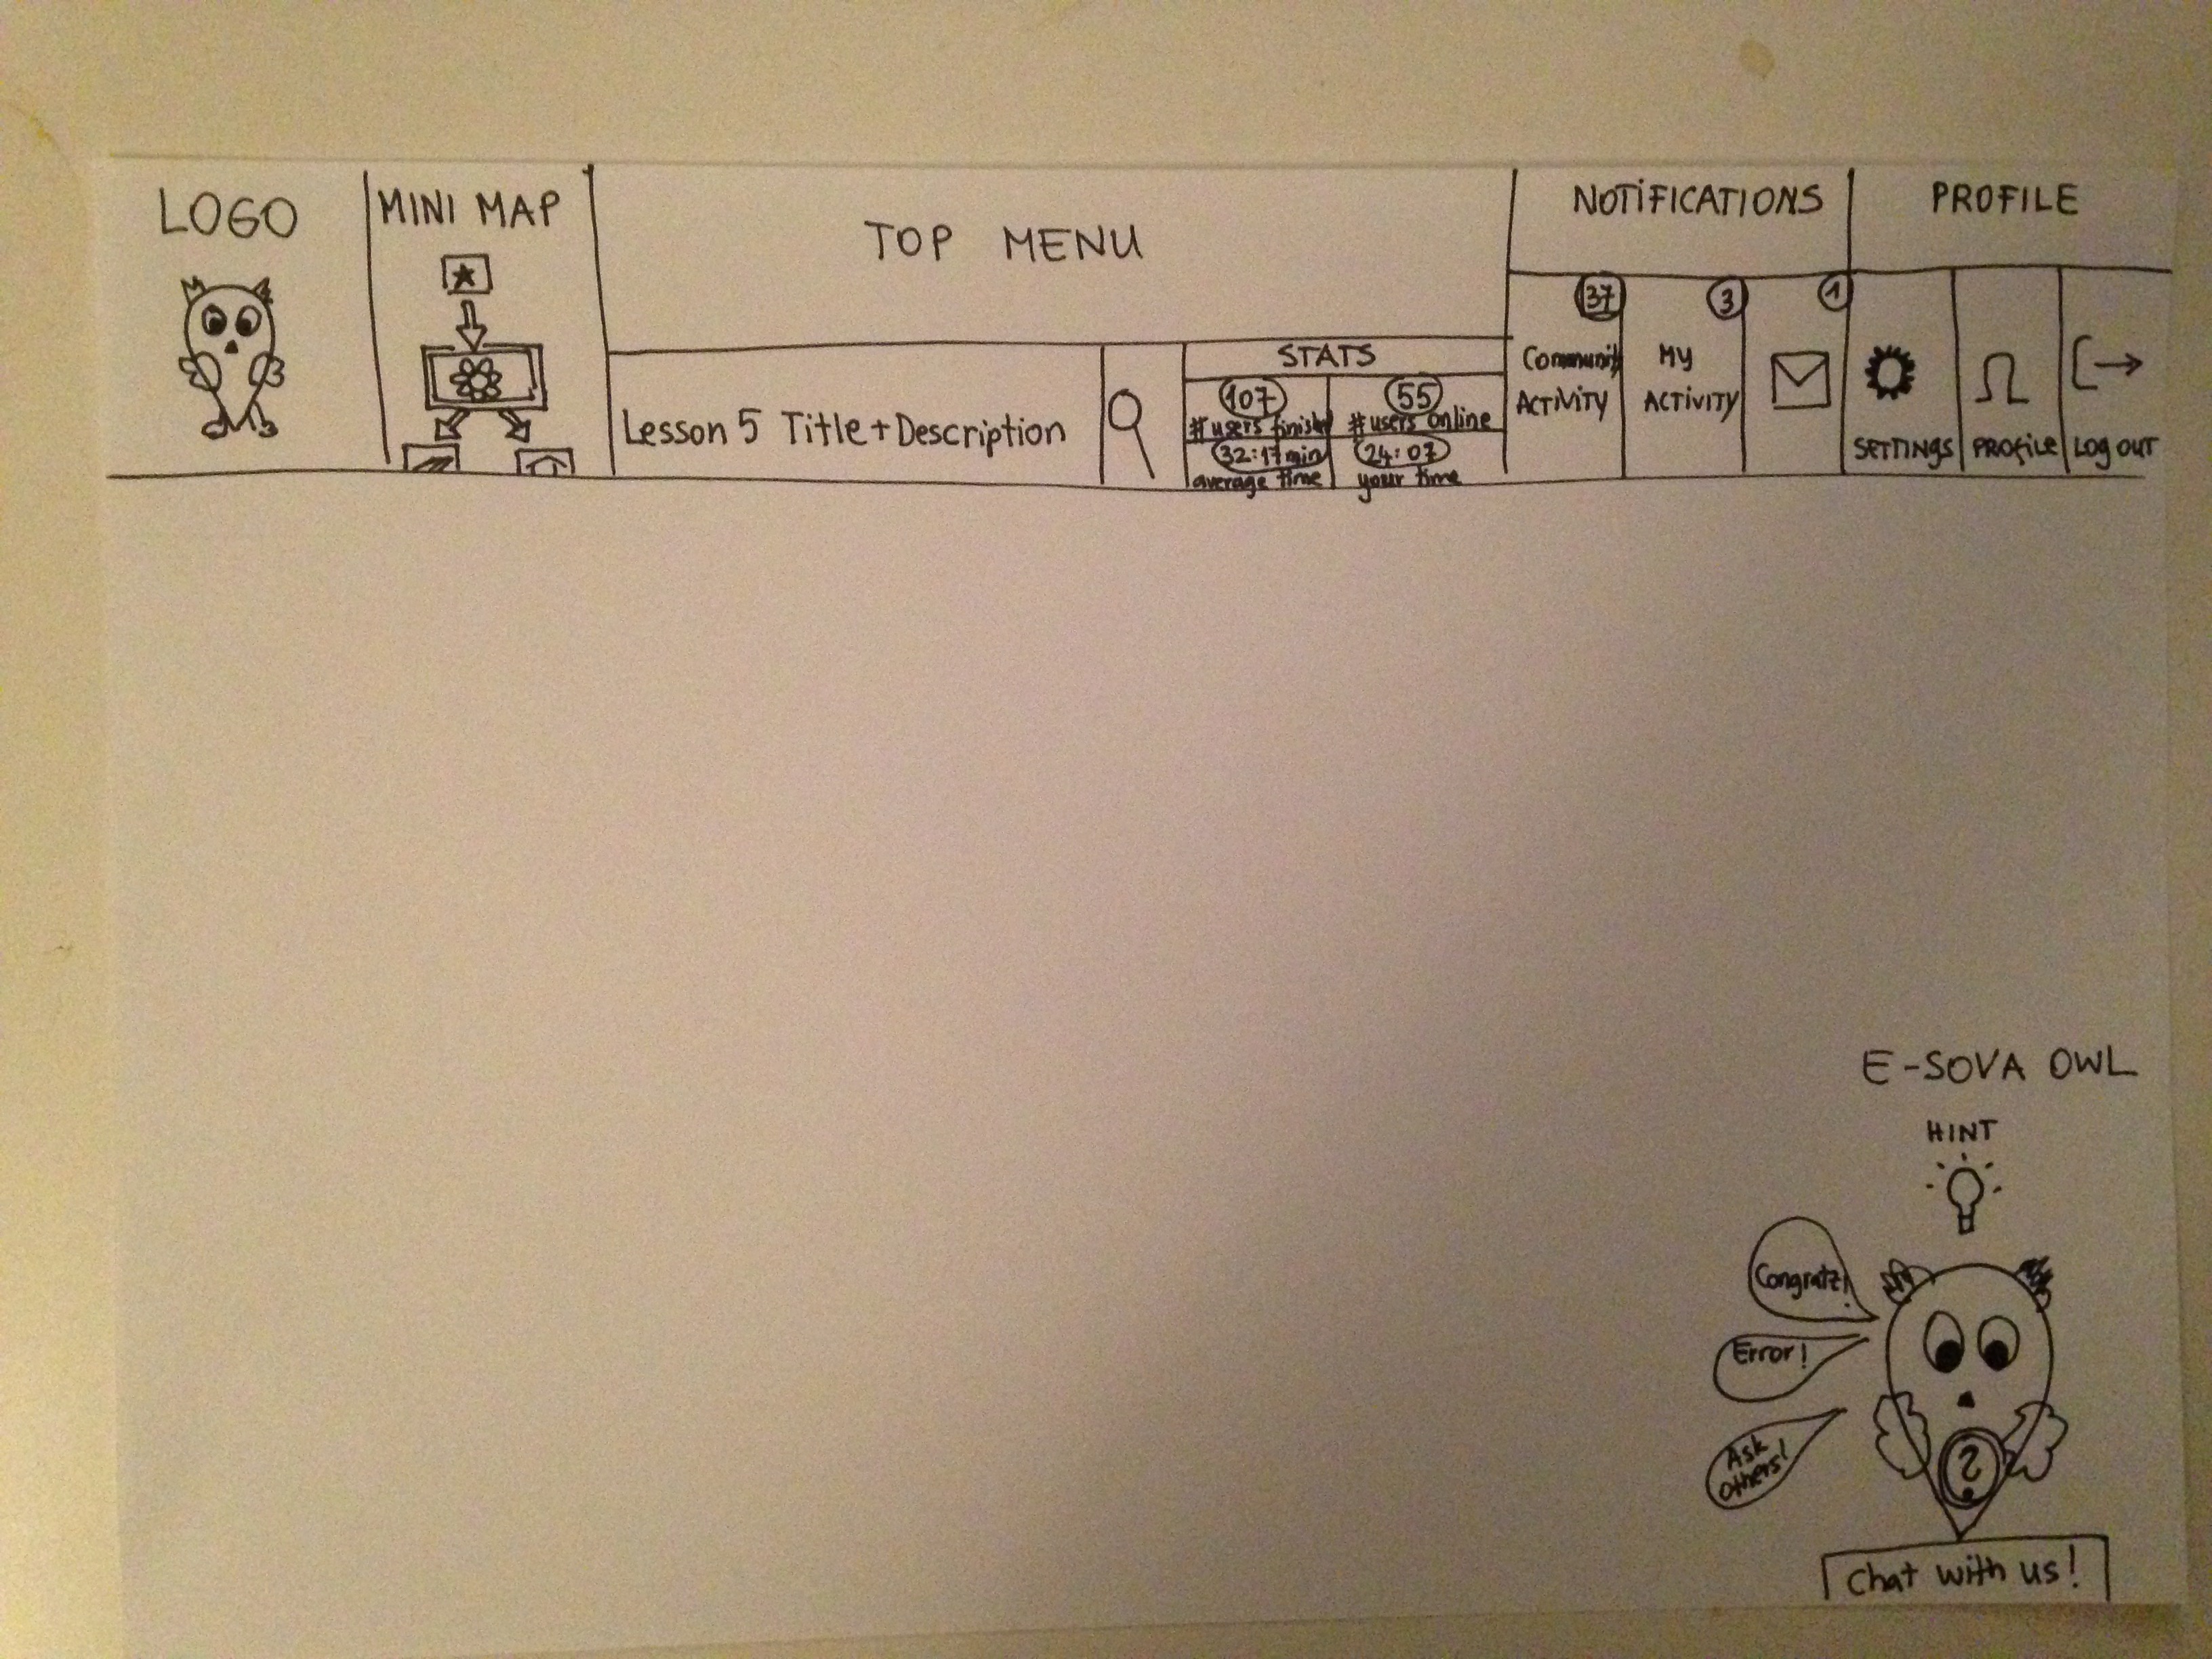 LOGO
MINI MAP
TOP MENU
Lesson 5 Title + Description
STATS
107
# users finished
55
# users online
32:17 min
average time
24:07
your time
NOTIFICATIONS
37
Community
ACTIVITY
3
MY
ACTIVITY
1
PROFILE
SETTINGS
PROFILE
LOG OUT
E-SOVA OWL
HINT
Congratz!
Error!
Ask
others!
?
Chat with us!